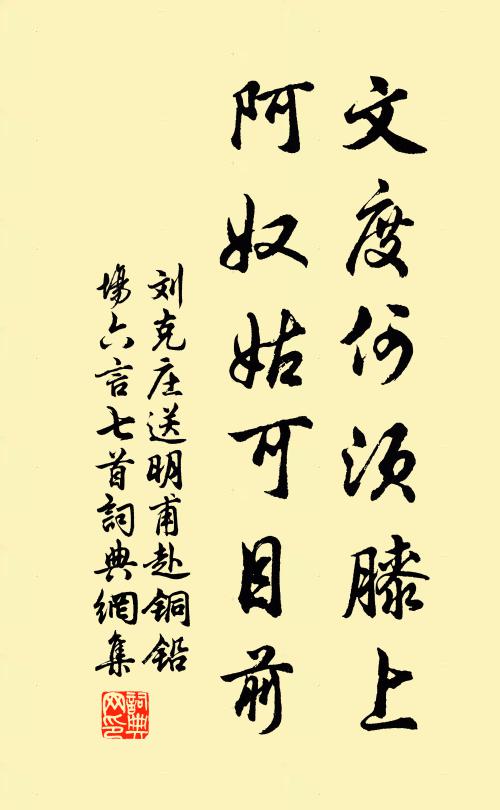 文度何须膝上
阿奴姑可目前
刘克庄送明甫赴铜铅
场六言七首词典網集
詞典
网印